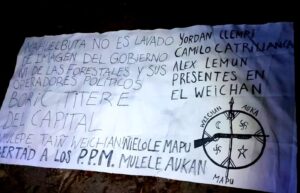 NAHUELBUTA NO ES LAVADO
DE IMAGEN DEL GOBIERNO
NI DE LAS FORESTALES Y SUS
OPERADORES POLITICOS
BORIC TITERE
DEL CAPITAL
YORDAN LLEMPI
CAMILO CATRILLANCA
ALEX LEMUN
PRESENTES EN
EL WEICHAN
WEICHAN AUKA
MAPU
TAIÑ WEICHAN ÑIELOLE MAPU
LIBERTAD A LOS P.P.M. MULELE AUKAN